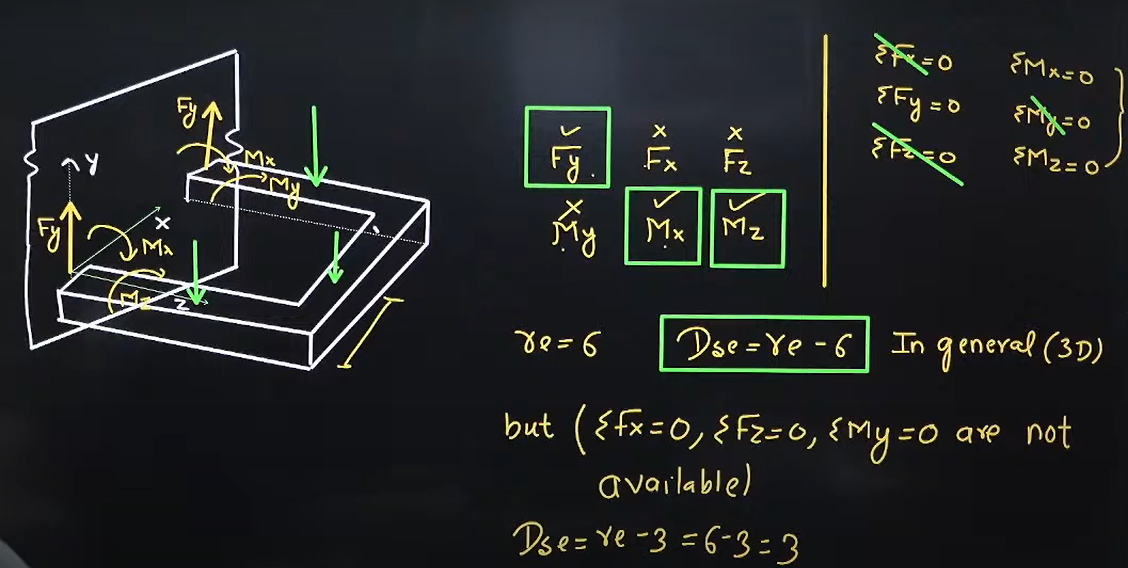 Fy
Mx
My
Y
Fy
X
Mx
Mz
Z
✓ × ×
Fy. Fx Fz
× ✓ ✓
My Mx Mz
ΣFx=0 ΣMx=0
ΣFy=0 ΣMy=0
ΣFz=0 ΣMz=0
re=6 Dse=re-6 In general (3D)
but (Σfx=0, ΣFz=0, ΣMy=0 are not
available)
Dse=re-3=6-3=3